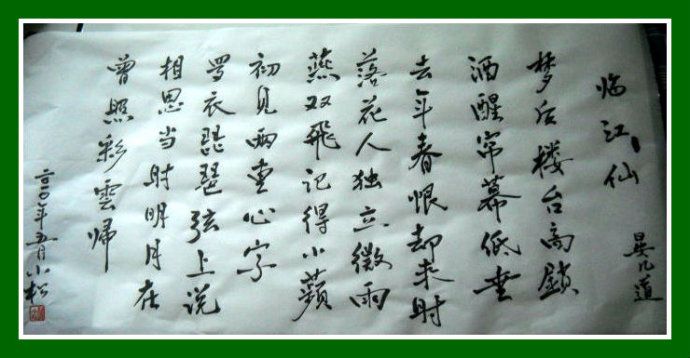 临江仙
晏几道
梦后楼台高鎖
酒醒帘幕低垂
去年春恨却来时
落花人独立微雨
燕双飞记得小蘋
初见两重心字
罗衣琵琶弦上说
相思当时明月在
曾照彩雲帰
年五月小松